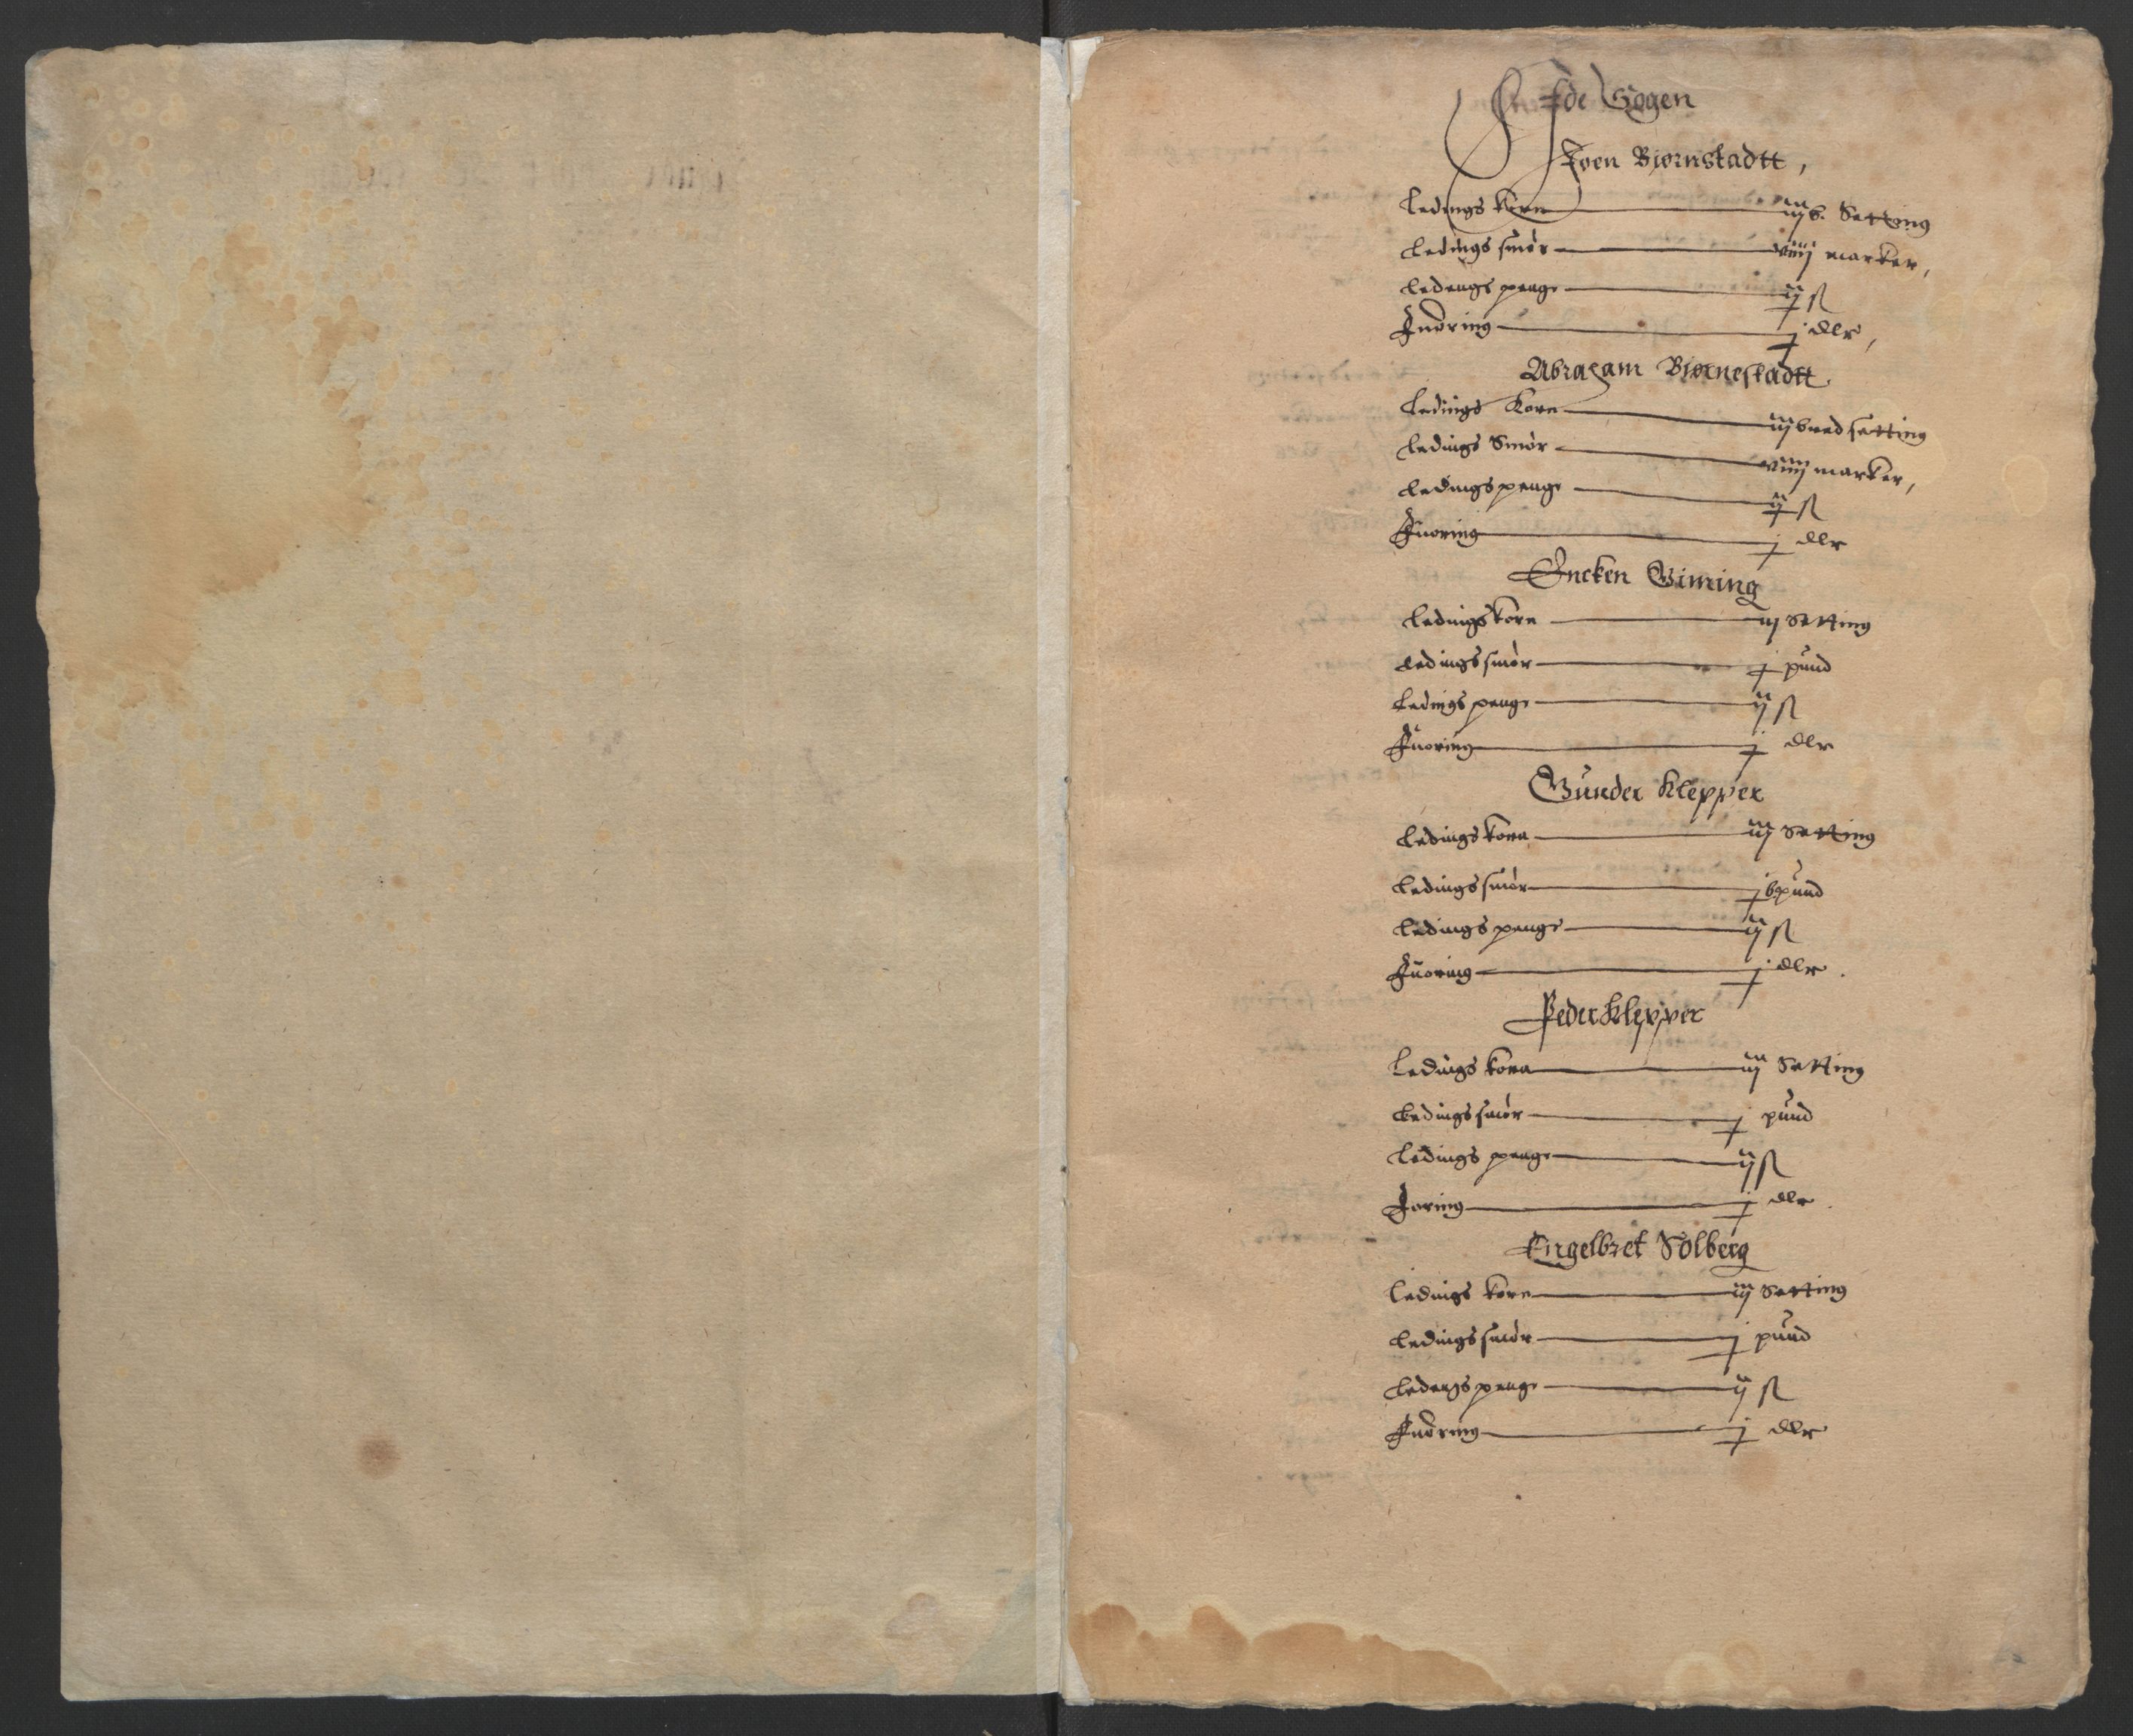 Ide Sogen
Joen Biørnstadtt,
Ledings korn — iijb. Setting
Ledings smør — viiij marker,
Ledengs penge — ij ß
Fuoring — j dlr,
Abraham Biørnestadtt.
Ledings Korn — iij bred setting
Ledings Smør — viiij marker,
Ledings penge — ij ß
Fuoring — j dlr
Oncken Giming
Ledings korn — iij Setting
Ledings smør — j pund
Ledings penge — ij ß
Fuoring — j dlr
Gunder Klepper
Ledings korn — iij Setting
Ledings smør — j bpund
Ledings penge — ij ß
Fuoring — j dlr.
Peder Klepper
Ledings korn — iij Setting
Ledings smør — j pund
Ledings penge — ij ß
Foring — j dlr.
Engelbret Solberg
Ledings korn — iij Setting
Ledings smør — j pund
Ledengs penge — ij ß
Fuoring — j dlr